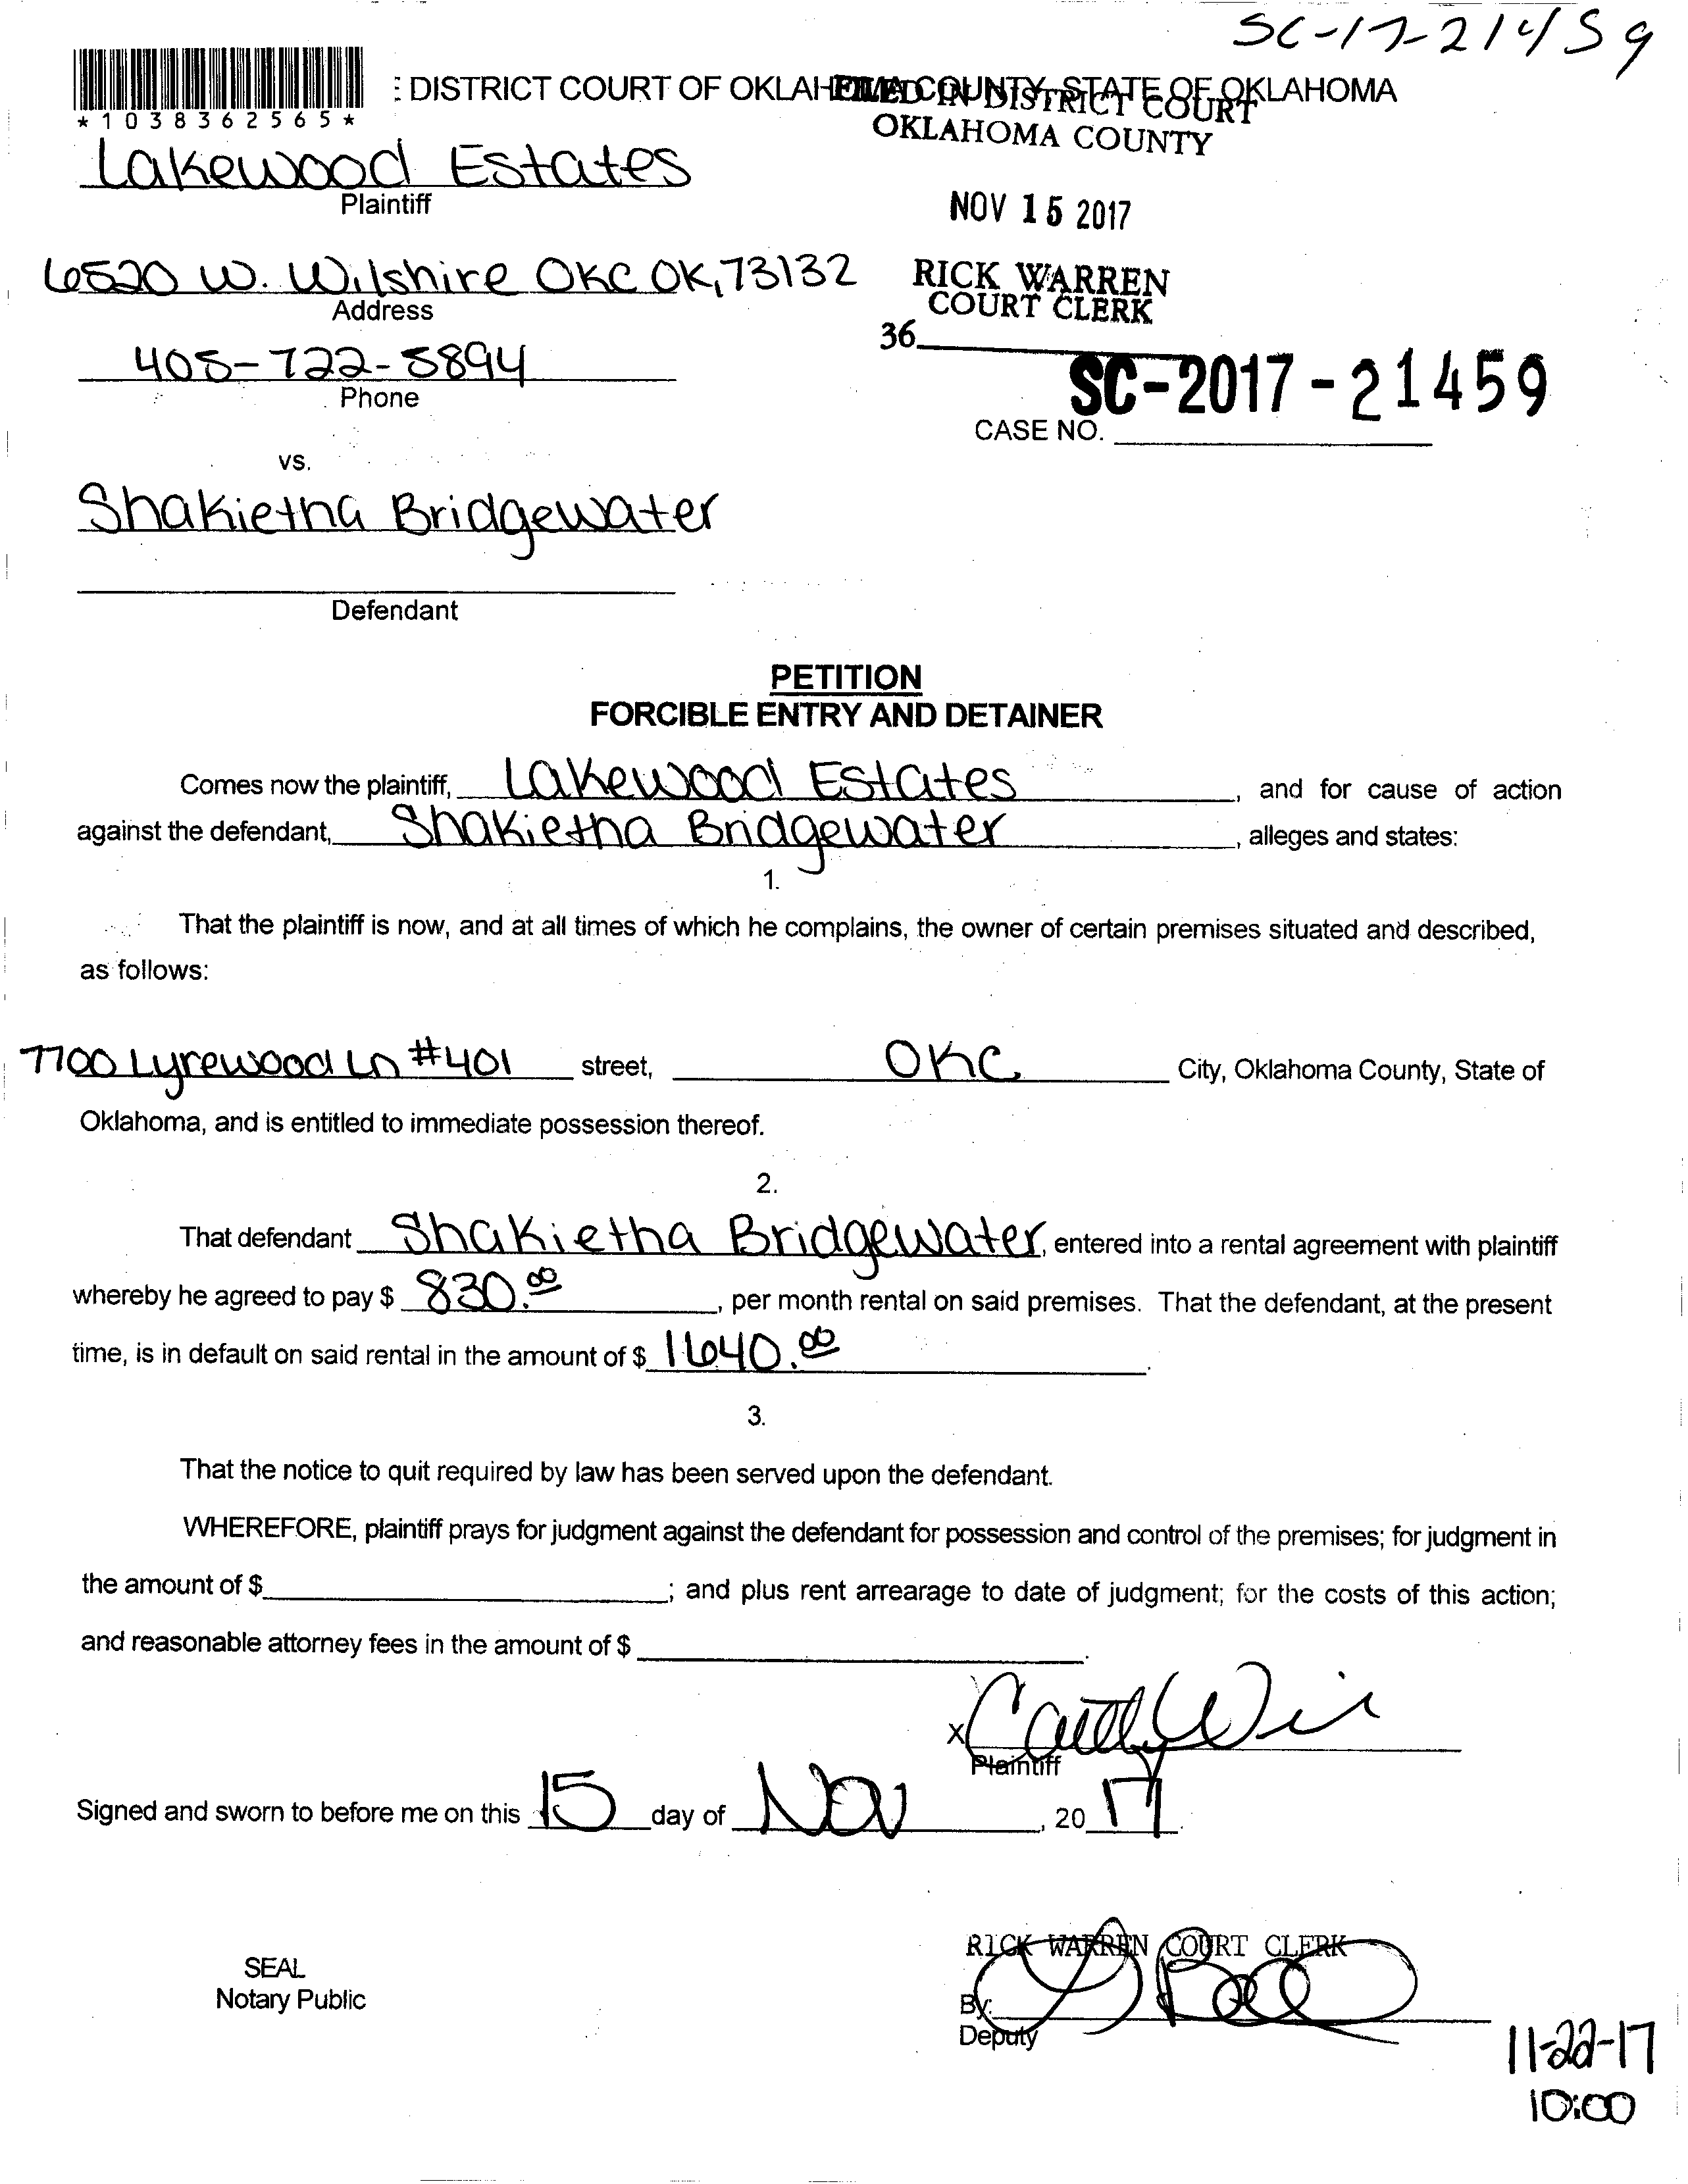 SC-17-21459
: DISTRICT COURT OF OKLAHOMA COUNTY, STATE OF OKLAHOMA
FILED IN DISTRICT COURT
OKLAHOMA COUNTY
*1038362565*
Lakewood Estates
Plaintiff
NOV 15 2017
6520 W. Wilshire OKC OK, 73132
Address
RICK WARREN
COURT CLERK
36
405-722-5894
Phone
SC-2017-21459
CASE NO.
vs.
Shakietha Bridgewater
Defendant
PETITION
FORCIBLE ENTRY AND DETAINER
Comes now the plaintiff, Lakewood Estates, and for cause of action
against the defendant, Shakietha Bridgewater, alleges and states:
1.
That the plaintiff is now, and at all times of which he complains, the owner of certain premises situated and described,
as follows:
7700 Lyrewood Ln #401 street, OKC City, Oklahoma County, State of
Oklahoma, and is entitled to immediate possession thereof.
2.
That defendant Shakietha Bridgewater, entered into a rental agreement with plaintiff
whereby he agreed to pay $ 830.00, per month rental on said premises. That the defendant, at the present
time, is in default on said rental in the amount of $ 1640.00.
3.
That the notice to quit required by law has been served upon the defendant.
WHEREFORE, plaintiff prays for judgment against the defendant for possession and control of the premises; for judgment in
the amount of $ ; and plus rent arrearage to date of judgment; for the costs of this action;
and reasonable attorney fees in the amount of $ .
X
Plaintiff
Signed and sworn to before me on this 15 day of Nov, 20 17.
RICK WARREN COURT CLERK
SEAL
Notary Public
By:
Deputy
11-22-17
10:00